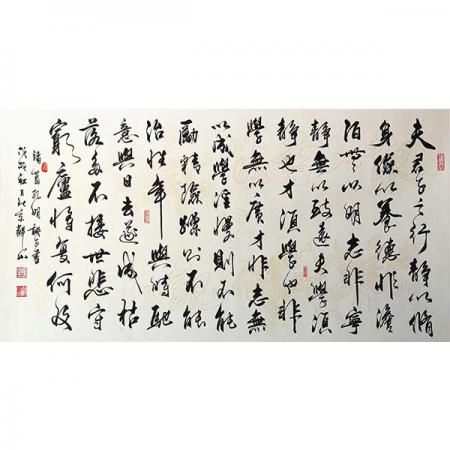 夫君子之行靜以脩
身儉以養德非澹
泊無以明志非寧
靜無以致遠夫學須
靜也才須學也非
學無以廣才非志無
以成學淫慢則不能
勵精險躁則不能
治性年與時馳
意與日去遂成枯
落多不接世悲守
窮廬將復何及
諸葛孔明誡子書
戊戌秋月於京